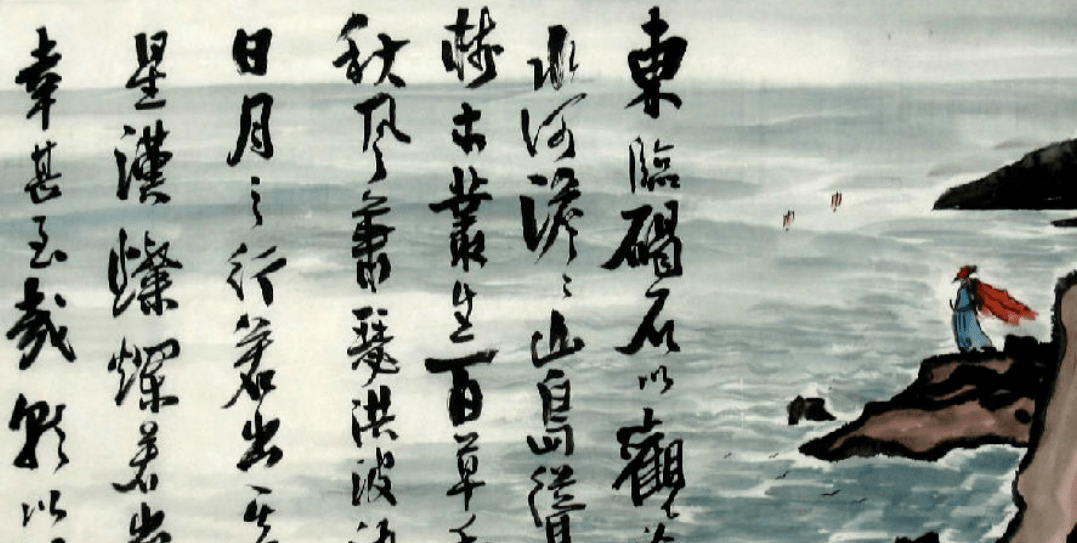 東臨碣石以觀
水河澹々山島
樹木叢生百草
秋風蕭瑟洪波
日月之行若出其
星漢燦爛若出
幸甚至哉歌以